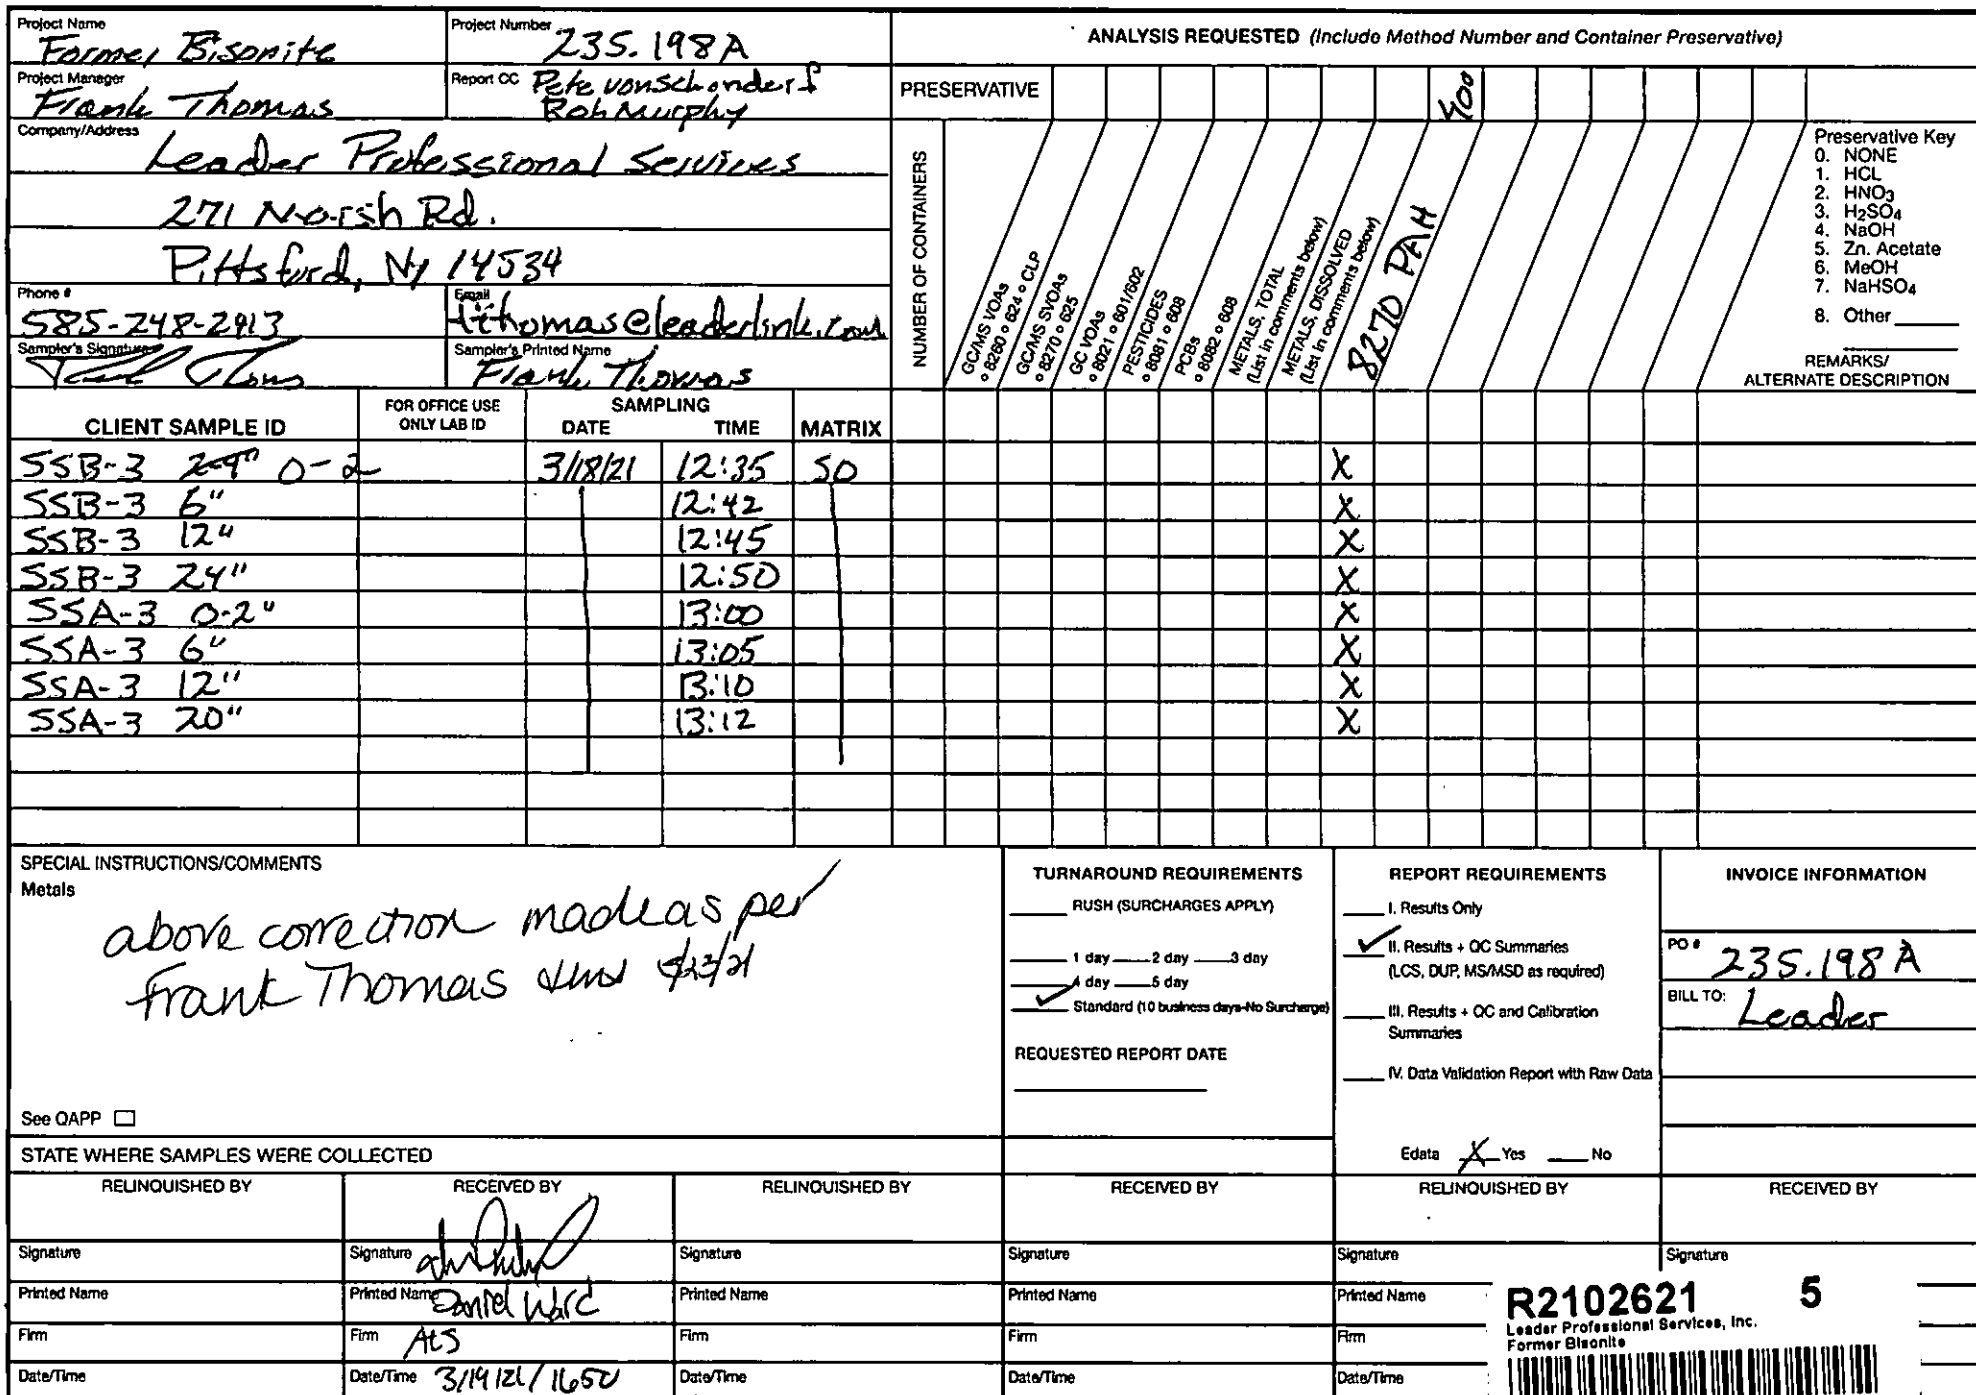 Project Name Former Bisonite
Project Number 235.198A
ANALYSIS REQUESTED (Include Method Number and Container Preservative)
Project Manager Frank Thomas
Report CC Pete vonSchonderf
Rob Murphy
PRESERVATIVE
Company/Address
Leader Professional Services
271 Marsh Rd.
Pittsford, NY 14534
Phone # 585-248-2413
Email fthomas@leaderlink.com
Sampler's Signature
Sampler's Printed Name Frank Thomas
NUMBER OF CONTAINERS
GC/MS VOAs
8260 624 CLP
GC/MS SVOAs
8270 625
GC VOAs
8021 601/602
PESTICIDES
8081 608
PCBs
8082 608
METALS, TOTAL
(List in comments below)
METALS, DISSOLVED
(List in comments below)
8270 PAH
Preservative Key
0. NONE
1. HCL
2. HNO3
3. H2SO4
4. NaOH
5. Zn. Acetate
6. MeOH
7. NaHSO4
8. Other
REMARKS/
ALTERNATE DESCRIPTION
CLIENT SAMPLE ID
FOR OFFICE USE
ONLY LAB ID
SAMPLING
DATE TIME
MATRIX
SSB-3 0-2 3/18/21 12:35 SO X
SSB-3 6" 12:42 X
SSB-3 12" 12:45 X
SSB-3 24" 12:50 X
SSA-3 0-2" 13:00 X
SSA-3 6" 13:05 X
SSA-3 12" 13:10 X
SSA-3 20" 13:12 X
SPECIAL INSTRUCTIONS/COMMENTS
Metals
above correction made as per
Frank Thomas
See QAPP
TURNAROUND REQUIREMENTS
RUSH (SURCHARGES APPLY)
1 day 2 day 3 day
4 day 5 day
Standard (10 business days-No Surcharge)
REQUESTED REPORT DATE
REPORT REQUIREMENTS
I. Results Only
II. Results + QC Summaries
(LCS, DUP, MS/MSD as required)
III. Results + QC and Calibration
Summaries
IV. Data Validation Report with Raw Data
Edata X Yes No
INVOICE INFORMATION
PO # 235.198A
BILL TO: Leader
STATE WHERE SAMPLES WERE COLLECTED
RELINQUISHED BY RECEIVED BY RELINQUISHED BY RECEIVED BY RELINQUISHED BY RECEIVED BY
Signature Signature Signature Signature Signature Signature
Printed Name Printed Name Daniel Ward Printed Name Printed Name Printed Name
Firm Firm ALS Firm Firm Firm
Date/Time Date/Time 3/19/21/1650 Date/Time Date/Time Date/Time
R2102621 5
Leader Professional Services, Inc.
Former Bisonite